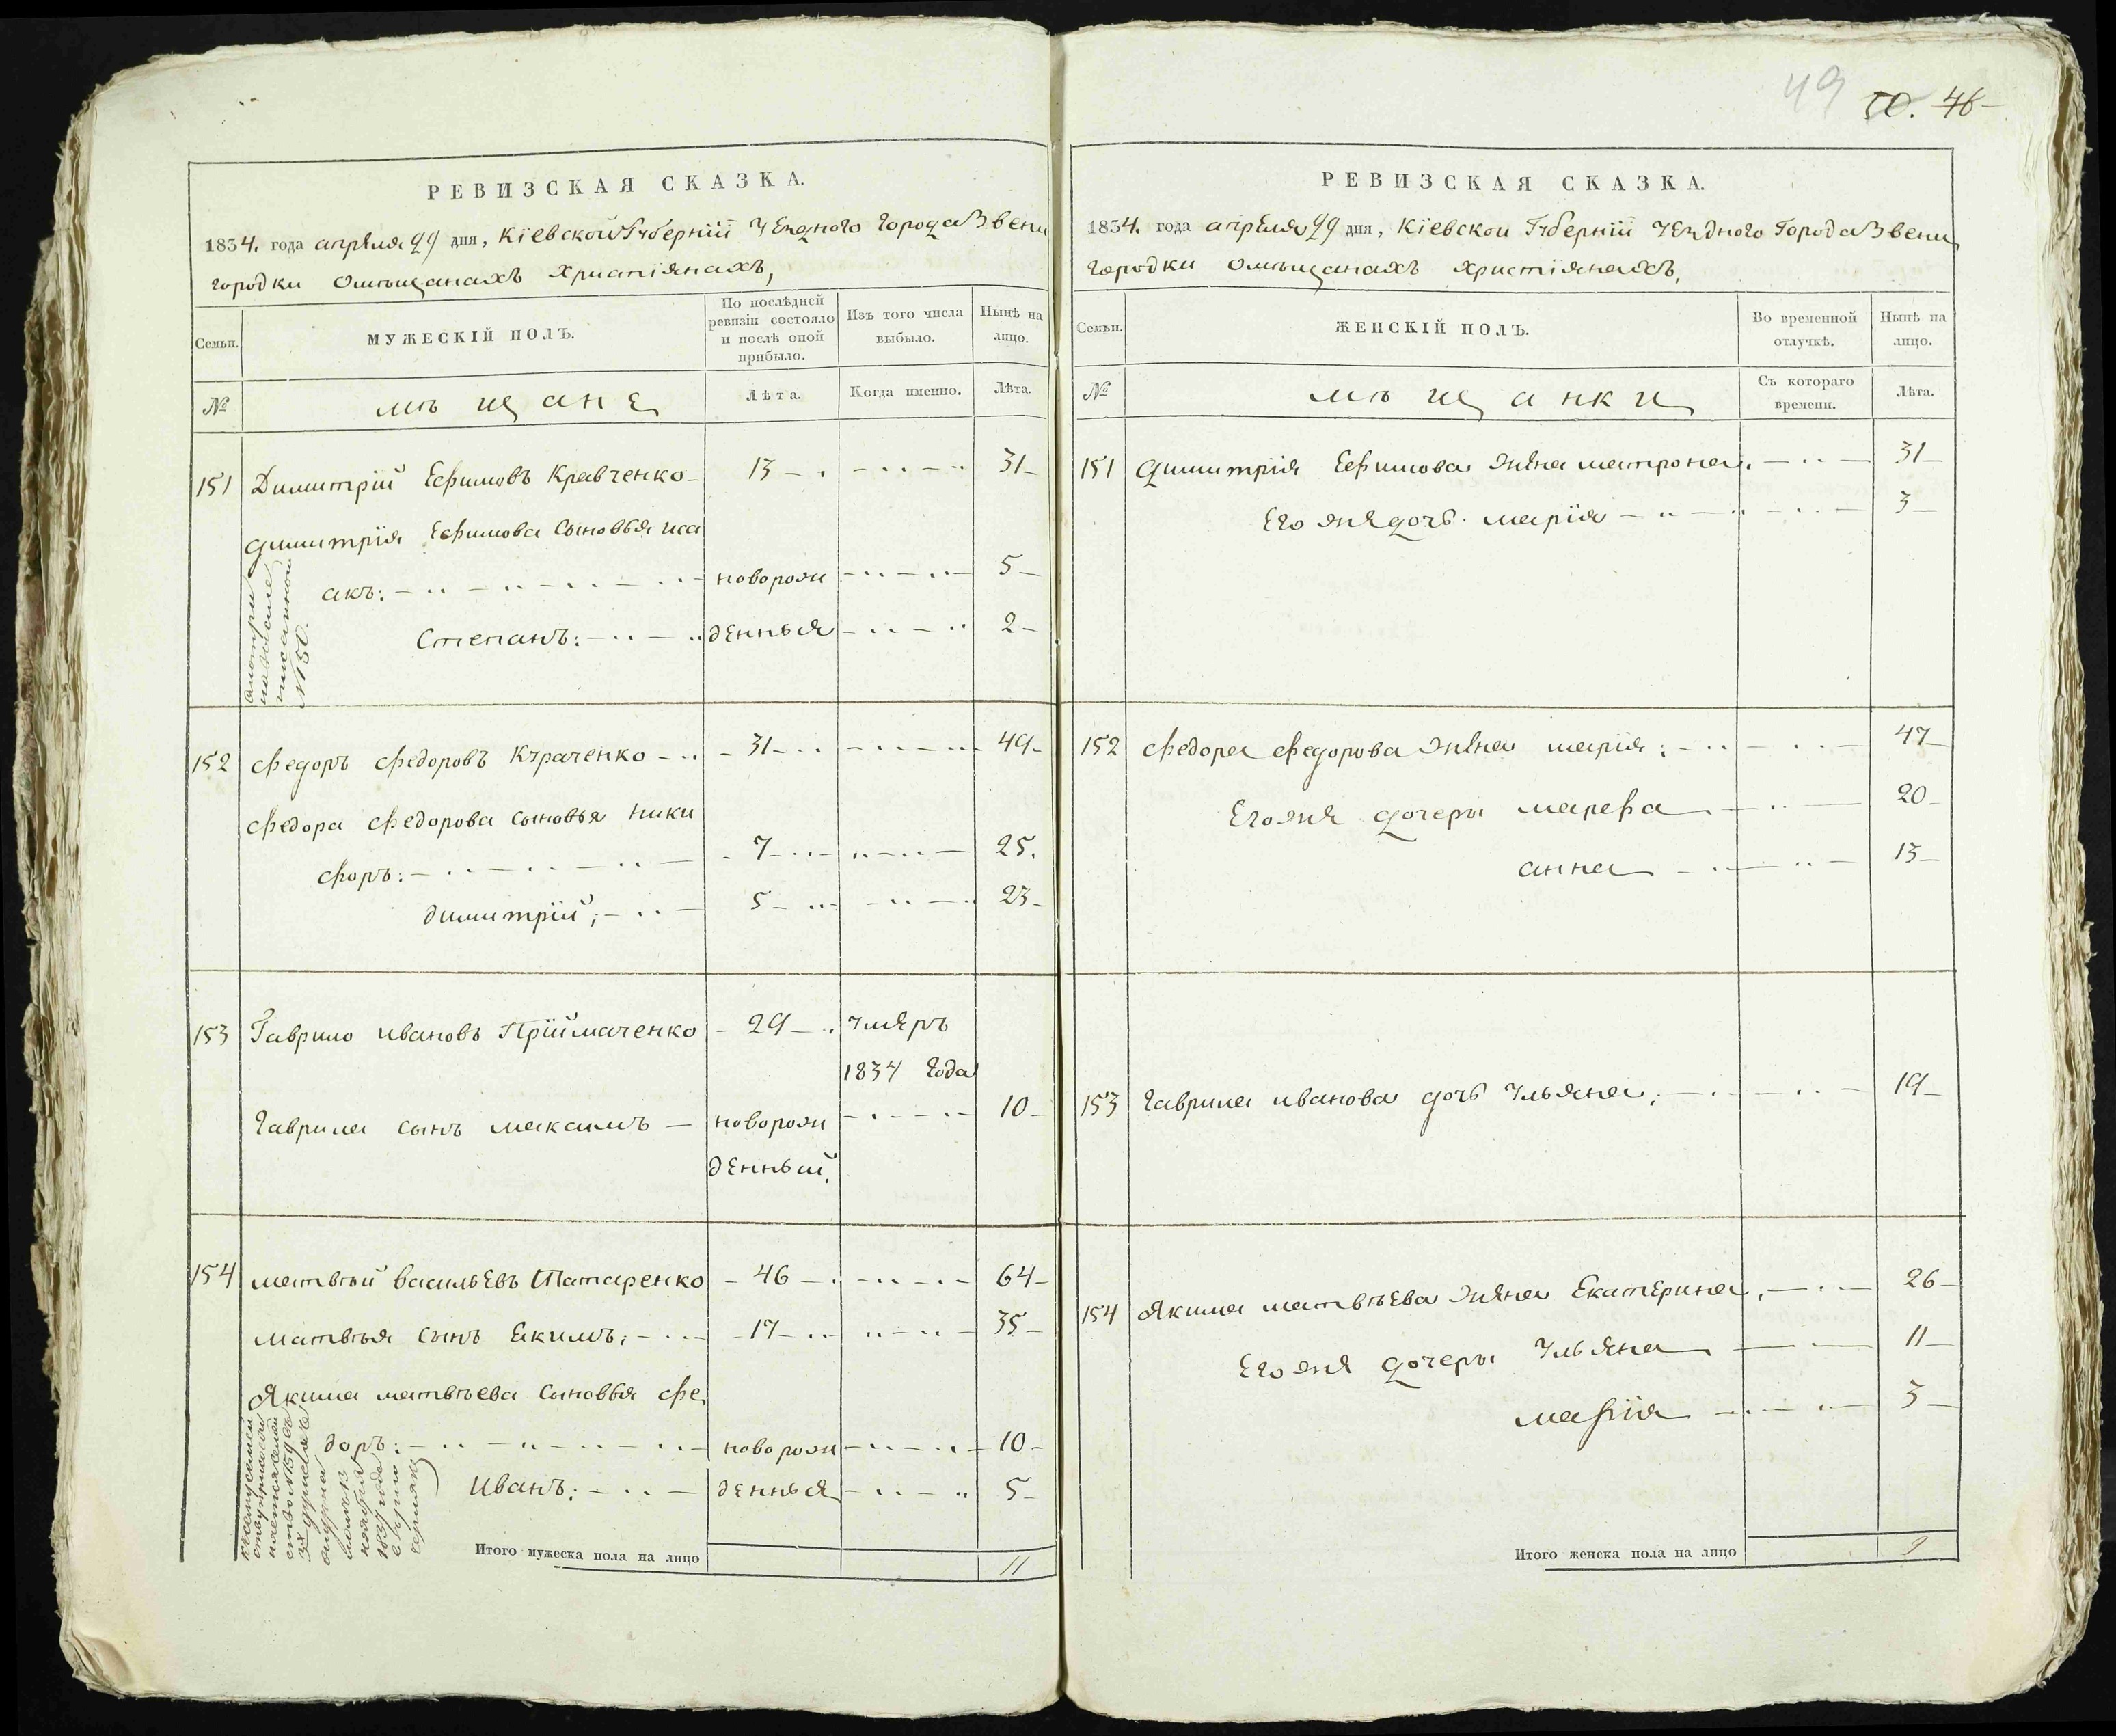 49 50. 46
РЕВИЗСКАЯ СКАЗКА.
1834. года апреля 29 дня, Кіевской Губерніи Уезднаго Города Звени
городки о мѣщанахъ Христіянахъ,
Семьи.
МУЖЕСКІЙ ПОЛЪ.
По послѣдней ревизіи состояло и послѣ оной прибыло.
Изъ того числа выбыло.
Нынѣ на лицо.
№
мѣщане
Лѣта.
Когда именно.
Лѣта.
151 Димитрій Ефимовъ Кравченко 13 31
Димитрія Ефимова сыновья иса
акъ: новорож 5
Степанъ: денныя 2
№150.
152 Федоръ Федоровъ Кураченко 31 49
Федора Федорова сыновья Ники
форъ: 7 25.
Димитрій; 5 23
153 Гаврило Ивановъ Пріймаченко 29 умеръ
1834 года
Гаврила сынъ Максимъ новорож 10
денный.
154 Матвѣй Васильевъ Татаренко 46 64
Матвѣя сынъ Екимъ, 17 35
Якима Матвѣева сыновья Фе
доръ: новорож 10
Иванъ: денныя 5
Итого мужеска пола на лицо 11
РЕВИЗСКАЯ СКАЗКА.
1834. года апреля 29 дня, Кіевской Губерніи Уездного Города Звени
городки о мѣщанахъ христіянахъ,
Семьи.
ЖЕНСКІЙ ПОЛЪ.
Во временной отлучкѣ.
Нынѣ на лицо.
№
мѣщанки
Съ котораго времени.
Лѣта.
151 Димитрія Ефимова жена матрона. 31
Его же дочь марія 3
152 Федора Федорова жена марія; 47
Его же дочеры марефа 20
анна 13
153 Гаврила иванова дочь Ульяна; 19
154 Якима матвѣева жена Екатерина, 26
Его же дочеры Ульяна 11
марія 3
Итого женска пола на лицо 9